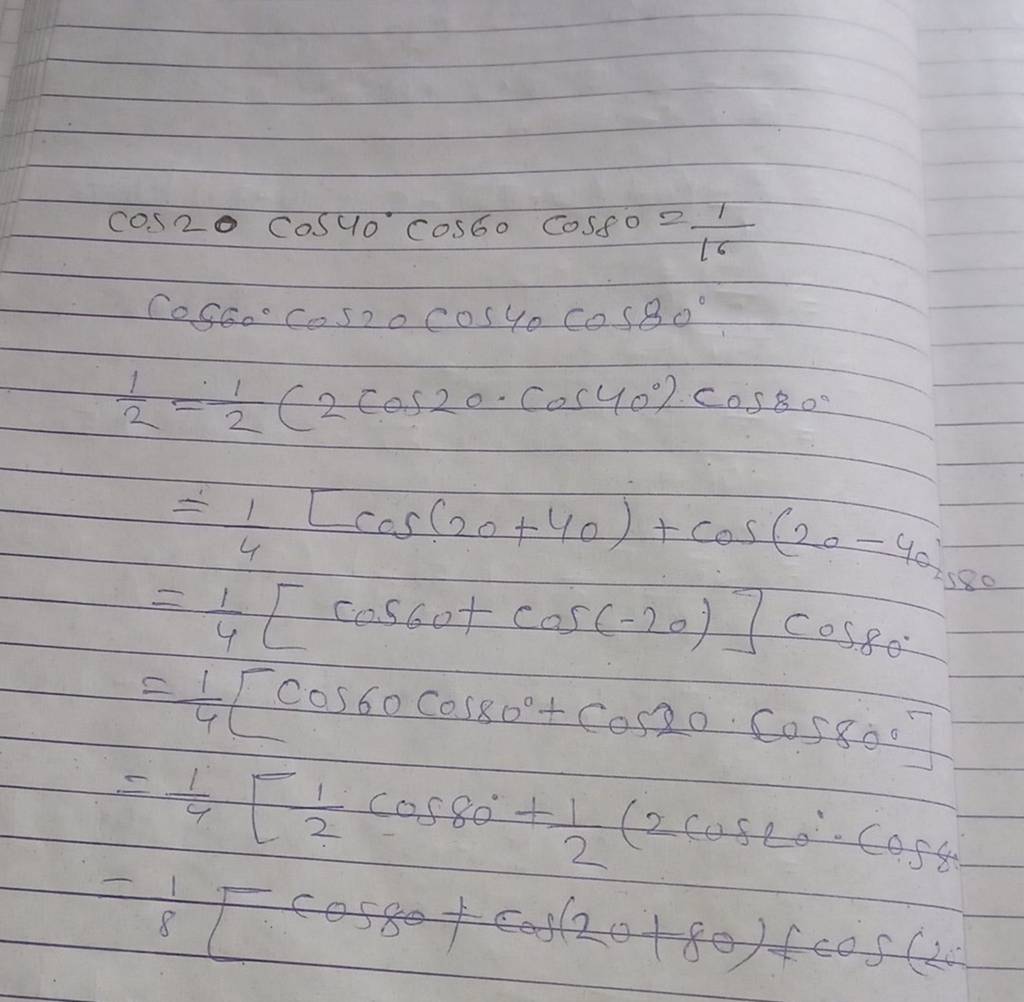 cos20 cos40° cos60 cos80 = 1/16
cos60° cos20 cos40 cos80°
1/2 = 1/2 (2 cos20 · cos40°) · cos80°
= 1/4 [cos(20+40) + cos(20-40 cos80
= 1/4 [ cos60 + cos(-20) ] cos80°
= 1/4 [cos60 cos80° + cos20 · cos80°]
= 1/4 [ 1/2 cos80° + 1/2 (2 cos20° · cos8
= 1/8 [ cos80 + cos(20+80) + cos(20